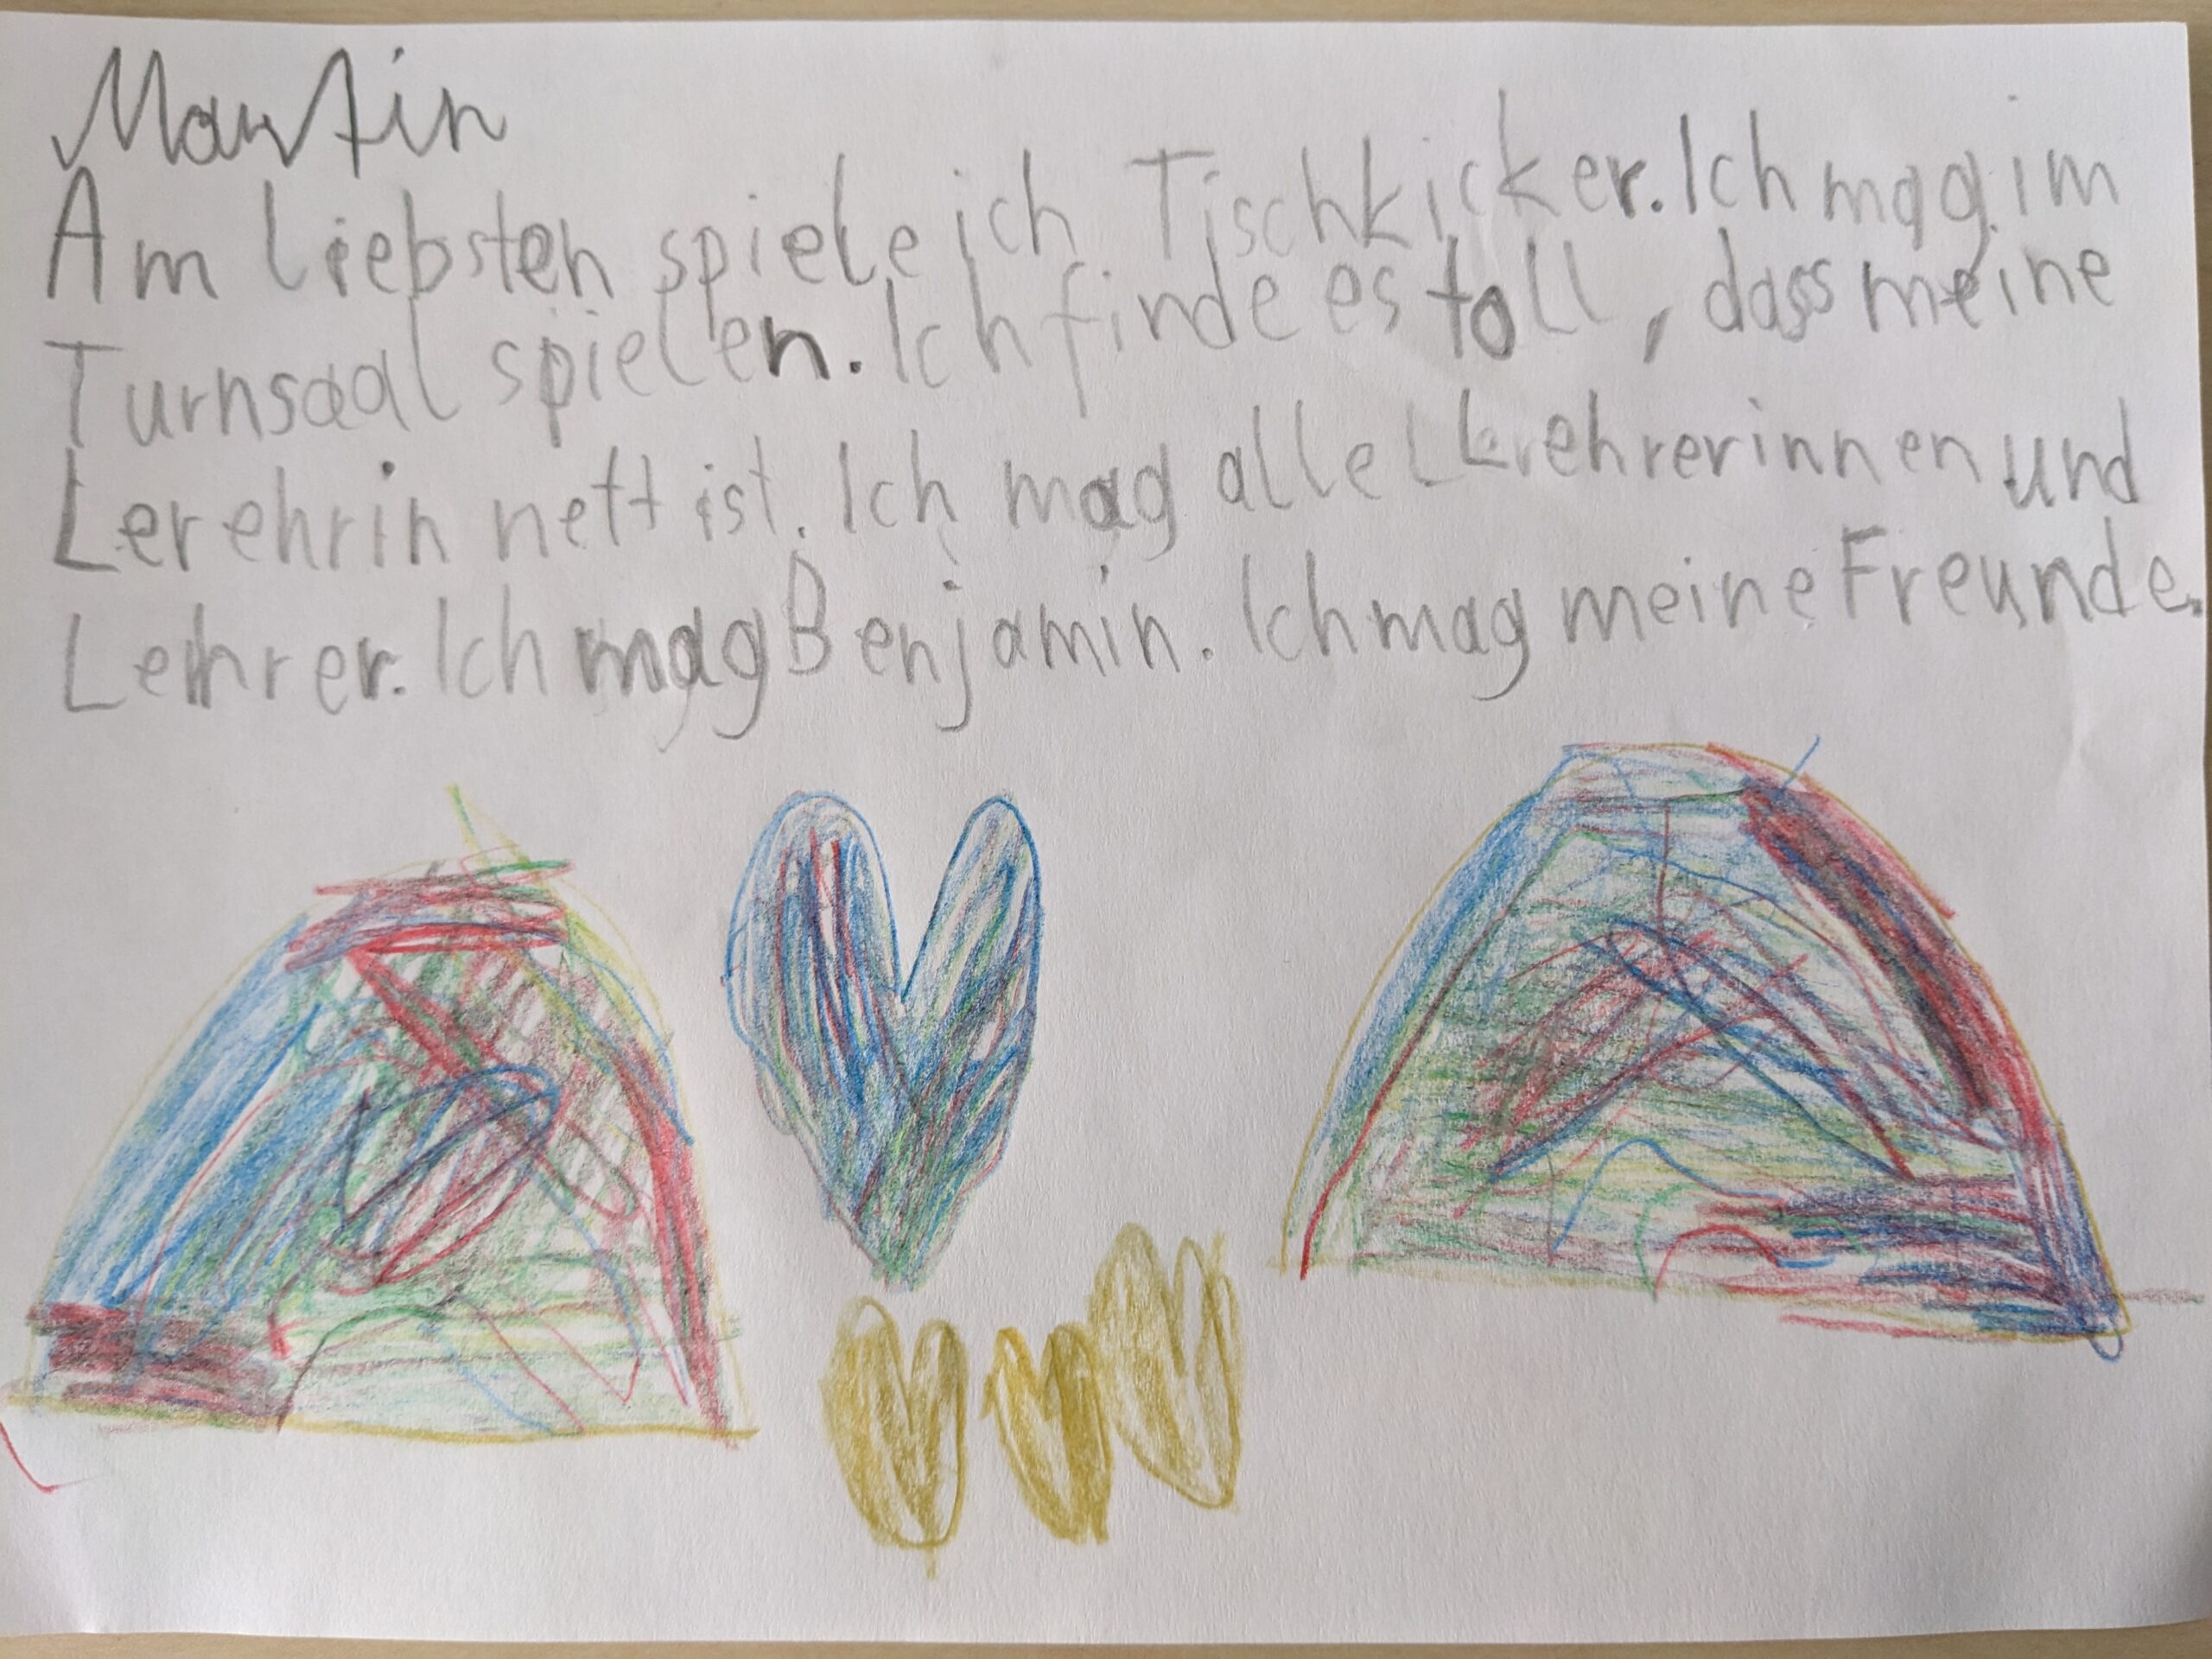 Martin
Am liebsten spiele ich Tischkicker. Ich mag im
Turnsaal spielen. Ich finde es toll, dass meine
Lerehrin nett ist. Ich mag alle Lehrerinnen und
Lehrer. Ich mag Benjamin. Ich mag meine Freunde.